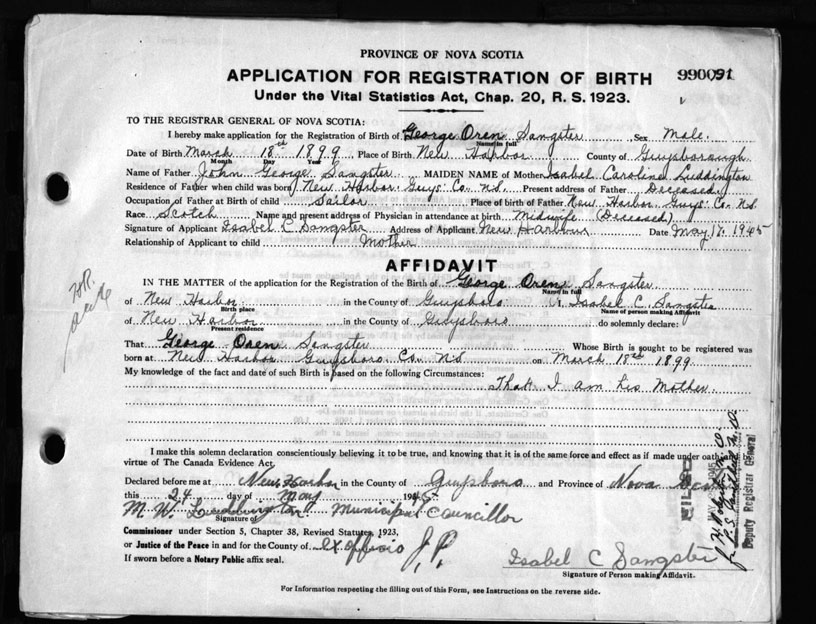 PROVINCE OF NOVA SCOTIA
APPLICATION FOR REGISTRATION OF BIRTH 990091
Under the Vital Statistics Act, Chap. 20, R. S. 1923.
TO THE REGISTRAR GENERAL OF NOVA SCOTIA:
I hereby make application for the Registration of Birth of George Oren Sangster Sex Male.
Name in full
Date of Birth March 18th 1899 Place of Birth New Harbor County of Guysborough
Month Day Year
Name of Father John George Sangster MAIDEN NAME of Mother Isabel Caroline Luddington
Residence of Father when child was born New Harbor Guys. Co. N.S. Present address of Father Deceased
Occupation of Father at Birth of child Sailor Place of birth of Father New Harbor Guys. Co. N.S.
Race Scotch Name and present address of Physician in attendance at birth Midwife (Deceased)
Signature of Applicant Isabel C Sangster Address of Applicant New Harbour Date May 18, 1945
Relationship of Applicant to child Mother
AFFIDAVIT
IN THE MATTER of the application for the Registration of the Birth of George Oren Sangster
Name in full
of New Harbor in the County of Guysboro I, Isabel C. Sangster
Birth place Name of person making Affidavit
of New Harbor in the County of Guysboro do solemnly declare:
Present residence
That George Oren Sangster Whose Birth is sought to be registered was
born at New Harbor Guysboro Co. N.S. on March 18th 1899
My knowledge of the fact and date of such Birth is based on the following Circumstances:
That I am his Mother.
I make this solemn declaration conscientiously believing it to be true, and knowing that it is of the same force and effect as if made under oath and
virtue of The Canada Evidence Act.
Declared before me at New Harbor in the County of Guysboro and Province of Nova
this 24 day of May 1945
M. W. Luddington Municipal Councillor
Signature of
Commissioner under Section 5, Chapter 38, Revised Statutes, 1923,
or Justice of the Peace in and for the County of ex officio J.P.
If sworn before a Notary Public affix seal.
Isabel C Sangster
Signature of Person making Affidavit.
For Information respecting the filling out of this Form, see Instructions on the reverse side.
FILED
Deputy Registrar General